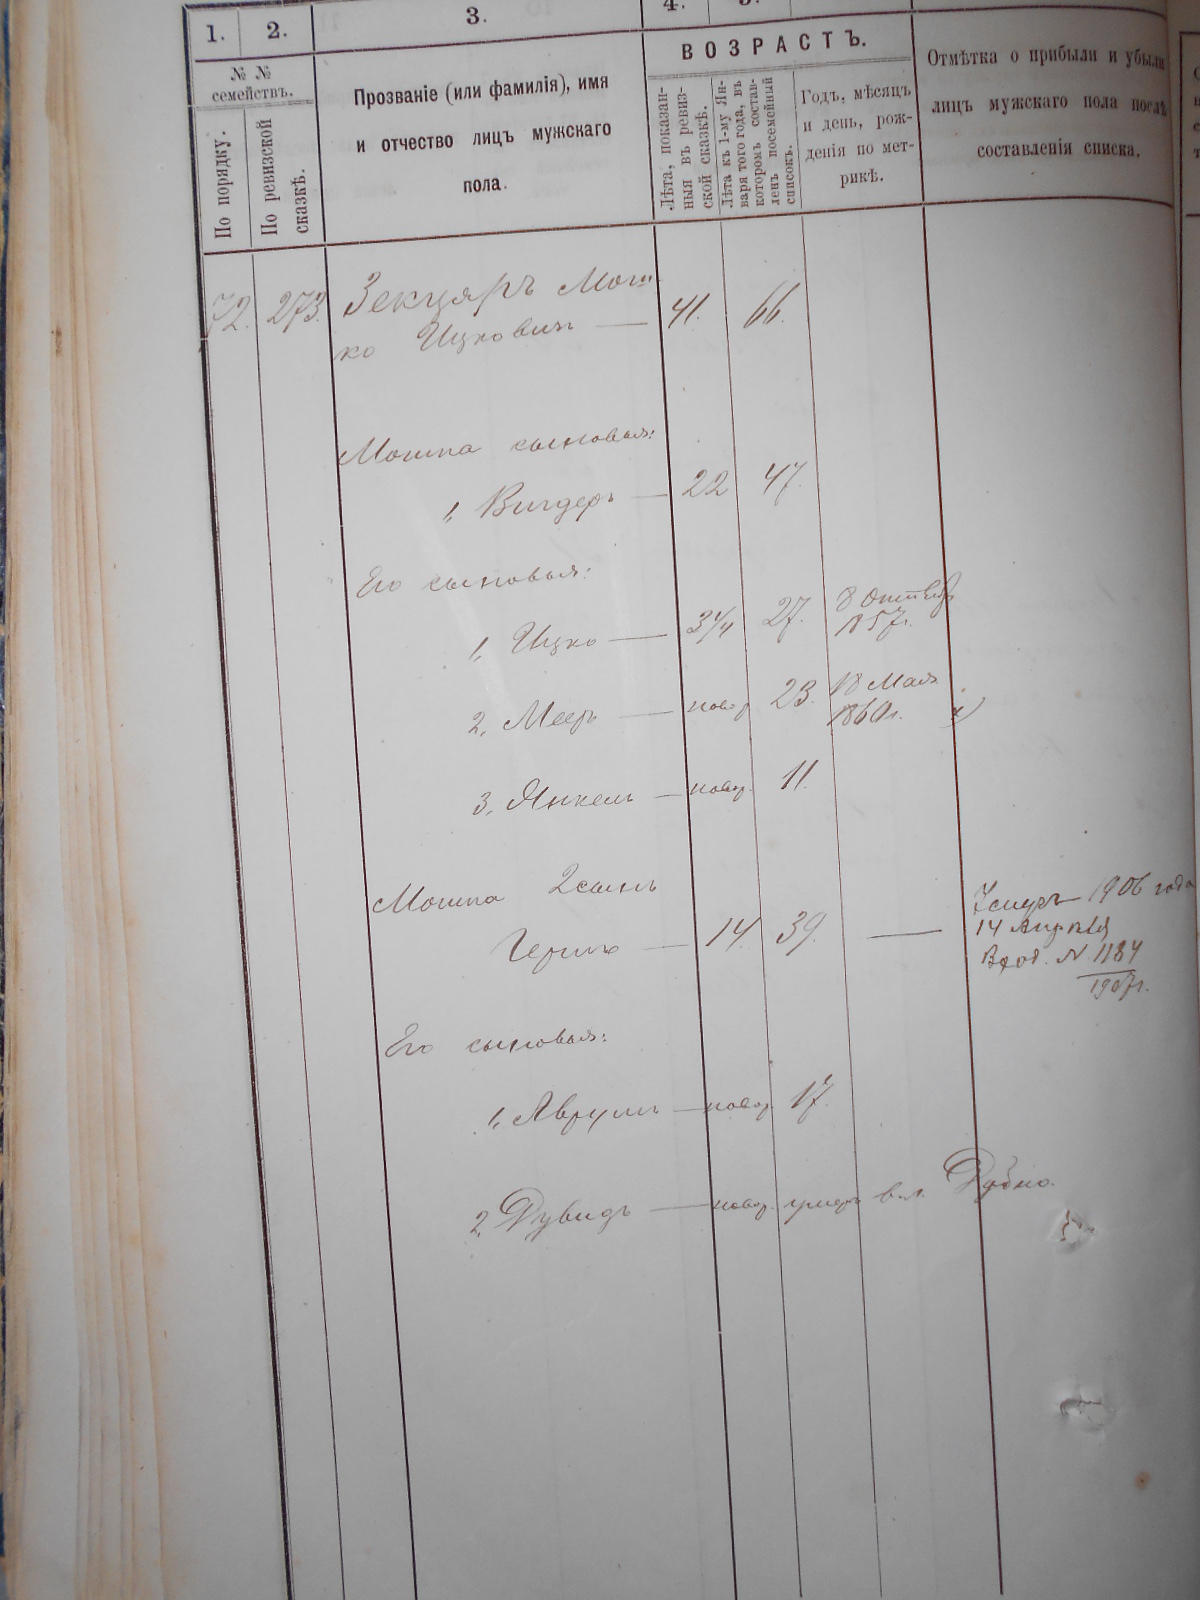 1. 2. 3. 4. 5.
№ № семействъ.
По порядку.
По ревизской сказкѣ.
Прозваніе (или фамилія), имя
и отчество лицъ мужскаго
пола.
ВОЗРАСТЪ.
Лѣта, показан-
ныя въ ревиз-
ской сказкѣ.
Лѣта къ 1-му Ян-
варя того года, въ
которомъ состав-
ленъ посемейный
списокъ.
Годъ, мѣсяцъ
и день, рож-
денія по мет-
рикѣ.
Отмѣтка о прибыли и убыли
лицъ мужскаго пола послѣ
составленія списка.
72. 273. Зекцяръ Мош
ко Ицковичъ — 41. 66.
Мошка сыновья:
1, Вигдеръ — 22 47.
Его сыновья:
1, Ицко — 3¼ 27. 8 Октября
1857г.
2, Мееръ — новор 23. 18 Мая
1860г.
3, Янкель — новор. 11.
Мошка 2 сынъ
Гершко — 14. 39. —
Умеръ 1906 года
14 Апрѣля
Вход. N 1184
1907г.
Его сыновья:
1, Аврумъ — новор. 17.
2, Дувидъ — новор. умеръ в г. Дубно.